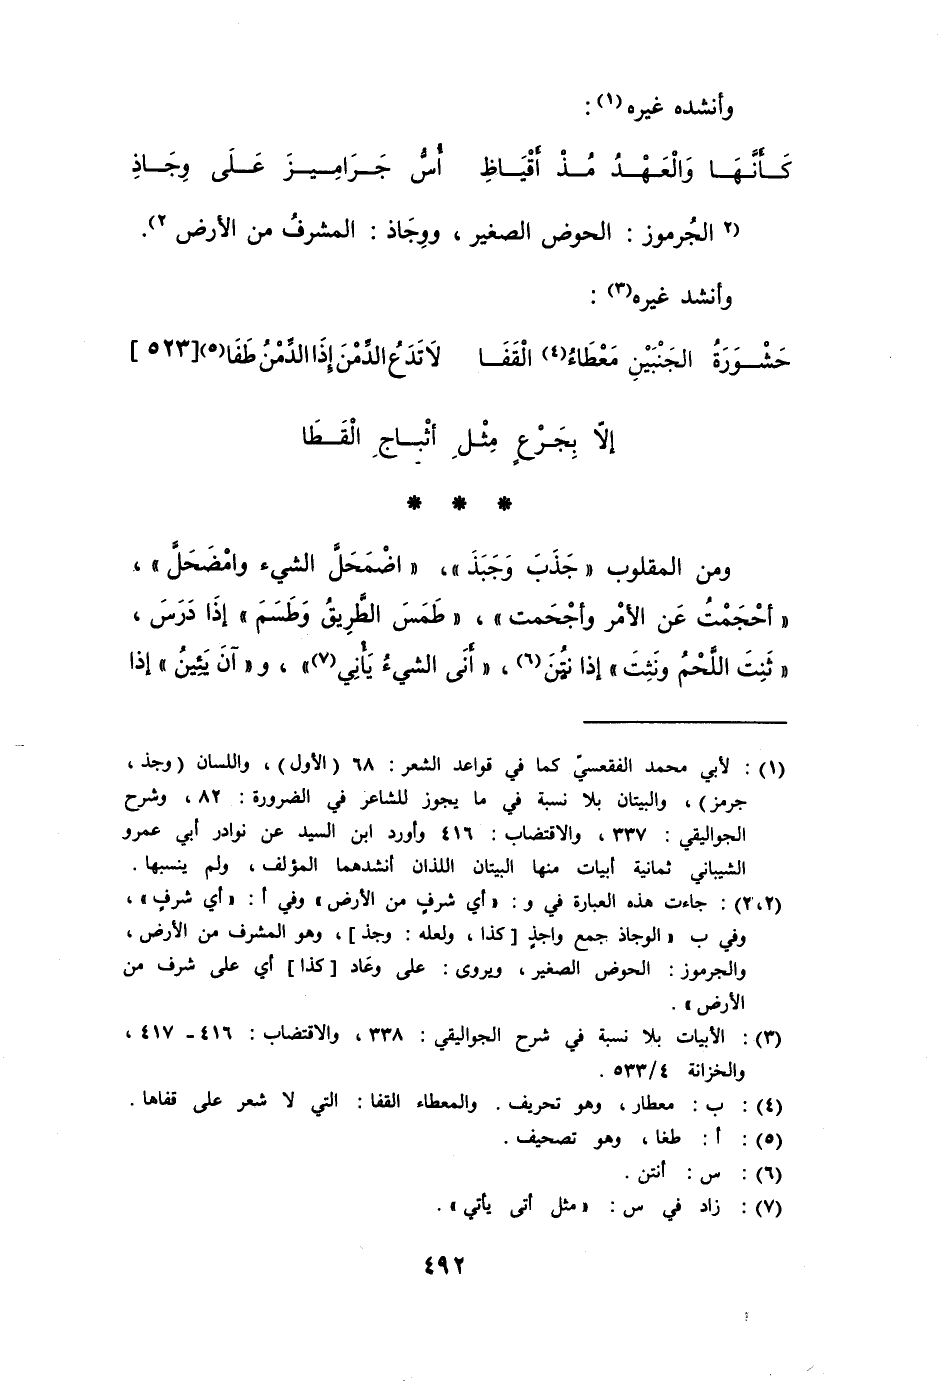 وأنشده غيره(١) :
كَــأَنَّــهَــا وَالْعَــهْــدُ مُــذْ أَقْيَــاظِ أُسُّ جَــرَامِــيــزَ عَــلَى وِجَــاذِ
(٢ الجُرموز : الحوض الصغير ، ووِجَاذ : المشرفُ من الأرض ٢).
وأنشد غيره(٣) :
حَشْــوَرَةُ الجَنْبَيْنِ مَعْطَاءُ(٤) الْقَفَــا لَا تَدَعُ الدِّمْنَ إِذَا الدِّمْنُ طَفَا(٥)[٥٢٣]
إلّا بِجَــرْعٍ مِثْــلِ أثْبــاجِ الْقَــطَا
* * *
ومن المقلوب « جَذَبَ وَجَبَذَ »، « اضْمَحَلَّ الشيء وامْضَحَلَّ » ،
« أحْجَمْتُ عَن الأمْر وأجْحَمت » ، « طَمَسَ الطَّرِيقُ وَطَسَمَ » إذَا دَرَسَ ،
« ثَنِتَ اللَّحْمُ ونَثِتَ » إذا نَتُنَ(٦) ، « أَنَى الشيءُ يَأْنِي(٧) » ، و « آنَ يَئِينُ » إذا
(١) : لأبي محمد الفقعسيّ كما في قواعد الشعر : ٦٨ (الأول) ، واللسان (وجذ ،
جرمز) ، والبيتان بلا نسبة في ما يجوز للشاعر في الضرورة : ٨٢ ، وشرح
الجواليقي : ٣٣٧ ، والاقتضاب : ٤١٦ وأورد ابن السيد عن نوادر أبي عمرو
الشيباني ثمانية أبيات منها البيتان اللذان أنشدهما المؤلف ، ولم ينسبها .
(٢،٢) : جاءت هذه العبارة في و : « أي شرفٍ من الأرض » وفي أ : « أي شرفٍ » ،
وفي ب « الوجاذ جمع واجذٍ [كذا ، ولعله : وجذ] ، وهو المشرف من الأرض ،
والجرموز : الحوض الصغير ، ويروى : على وعَاد [كذا] أي على شرف من
الأرض » .
(٣) : الأبيات بلا نسبة في شرح الجواليقي : ٣٣٨ ، والاقتضاب : ٤١٦ ــ ٤١٧ ،
والخزانة ٤/ ٥٣٣ .
(٤) : ب : معطار ، وهو تحريف . والمعطاء القفا : التي لا شعر على قفاها .
(٥) : أ : طغا ، وهو تصحيف .
(٦) : س : أنتن .
(٧) : زاد في س : « مثل أتى يأتي » .
٤٩٢